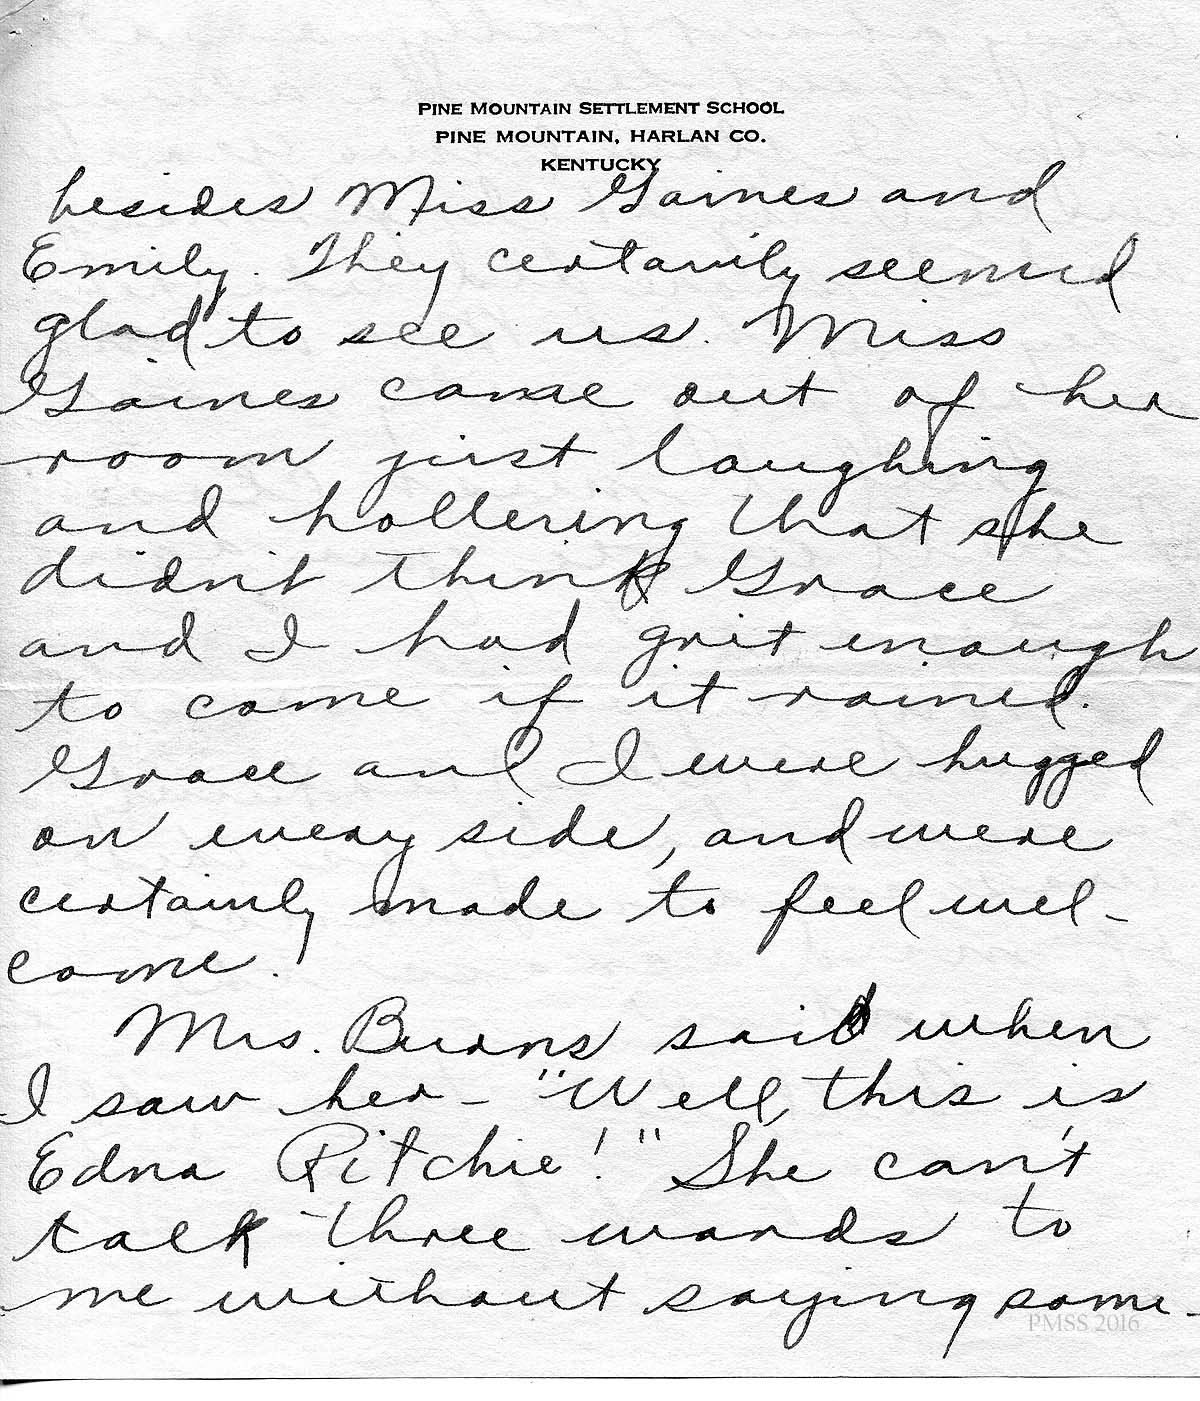 PINE MOUNTAIN SETTLEMENT SCHOOL
PINE MOUNTAIN, HARLAN CO.
KENTUCKY
besides Miss Gaines and
Emily. They certainly seemed
glad to see us. Miss
Gaines came out of her
room just laughing
and hollering that she
didn't think Grace
and I had grit enough
to come if it rained.
Grace and I were hugged
on every side, and were
certainly made to feel wel-
come.
Mrs. Burns said when
I saw her - "Well, this is
Edna Ritchie!" She can't
talk three words to
me without saying some-
PMSS 2016